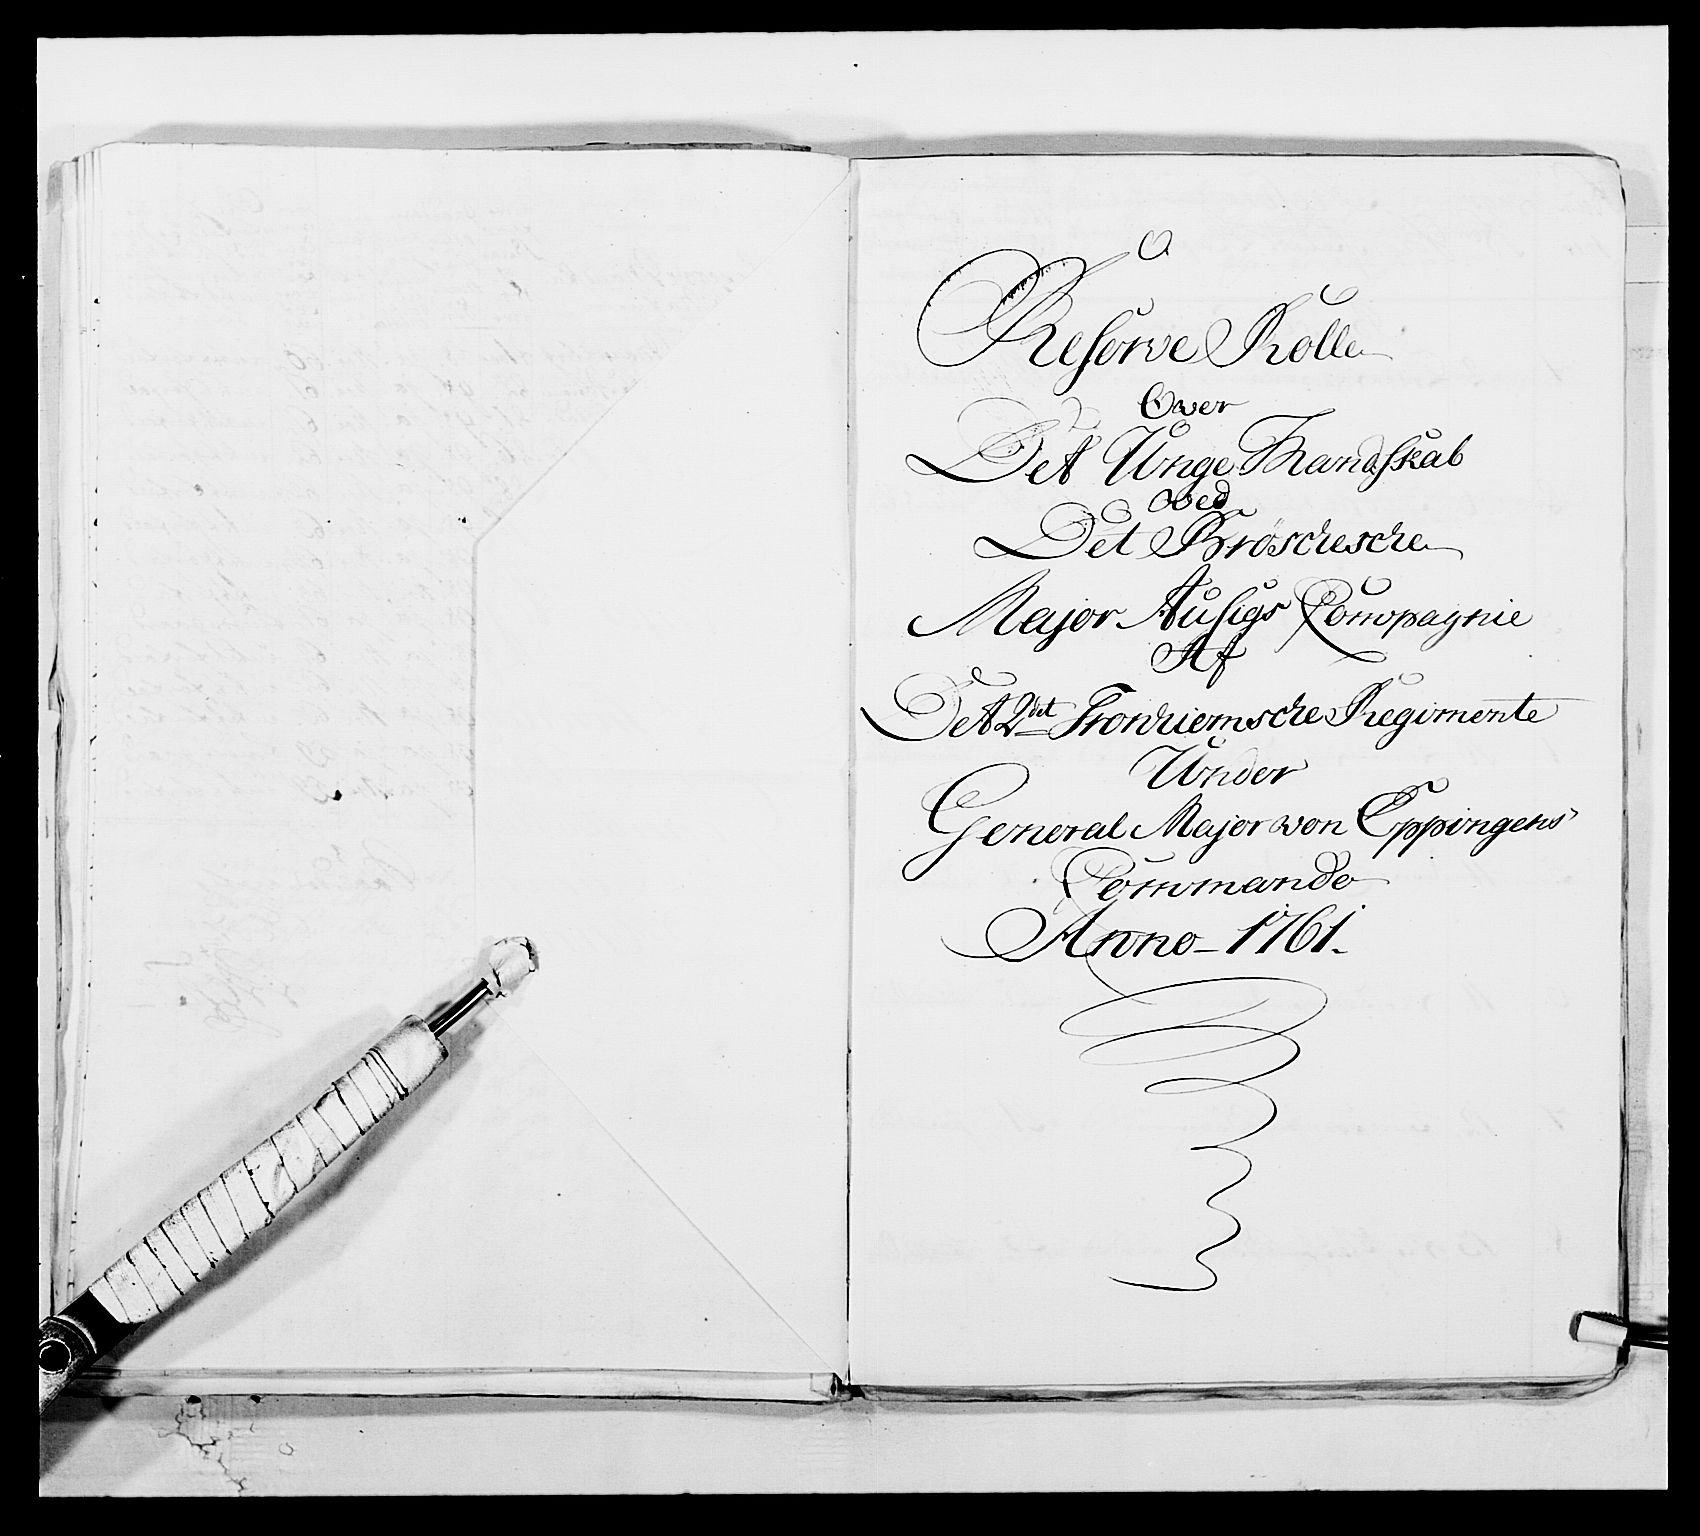 Reserve Rolle
Over
Det Unge Mandskab
wed
Det Bröschesche
Major Ausigs Compagnie
Af
Det 2det Tronhiemsche Regimente
Under
General Major von Eppingens
Commando
Anno 1761.